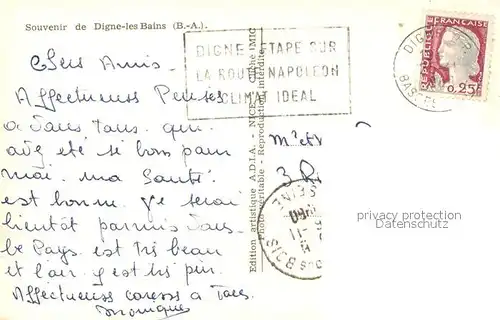 Souvenir de Digne-les Bains (B.-A.).
DIGNE ETAPE SUR
LA ROUTE NAPOLEON
CLIMAT IDEAL
REPUBLIQUE FRANÇAISE
0,25
DIG
BAS
Chers Amis.
Affectueuses Pensées
a Vous Tous qui
avez été si bons pour
moi. ma Santé
est bonne je serai
bientôt parmis Vous
le Pays est très beau
et l'air y est très pur
Affectueuses caresses a Tous
Monique
Edition artistique A.D.I.A. - NICE -
Photo véritable - Reproduction interdite
3 R
SEINE
privacy protection
Datenschutz